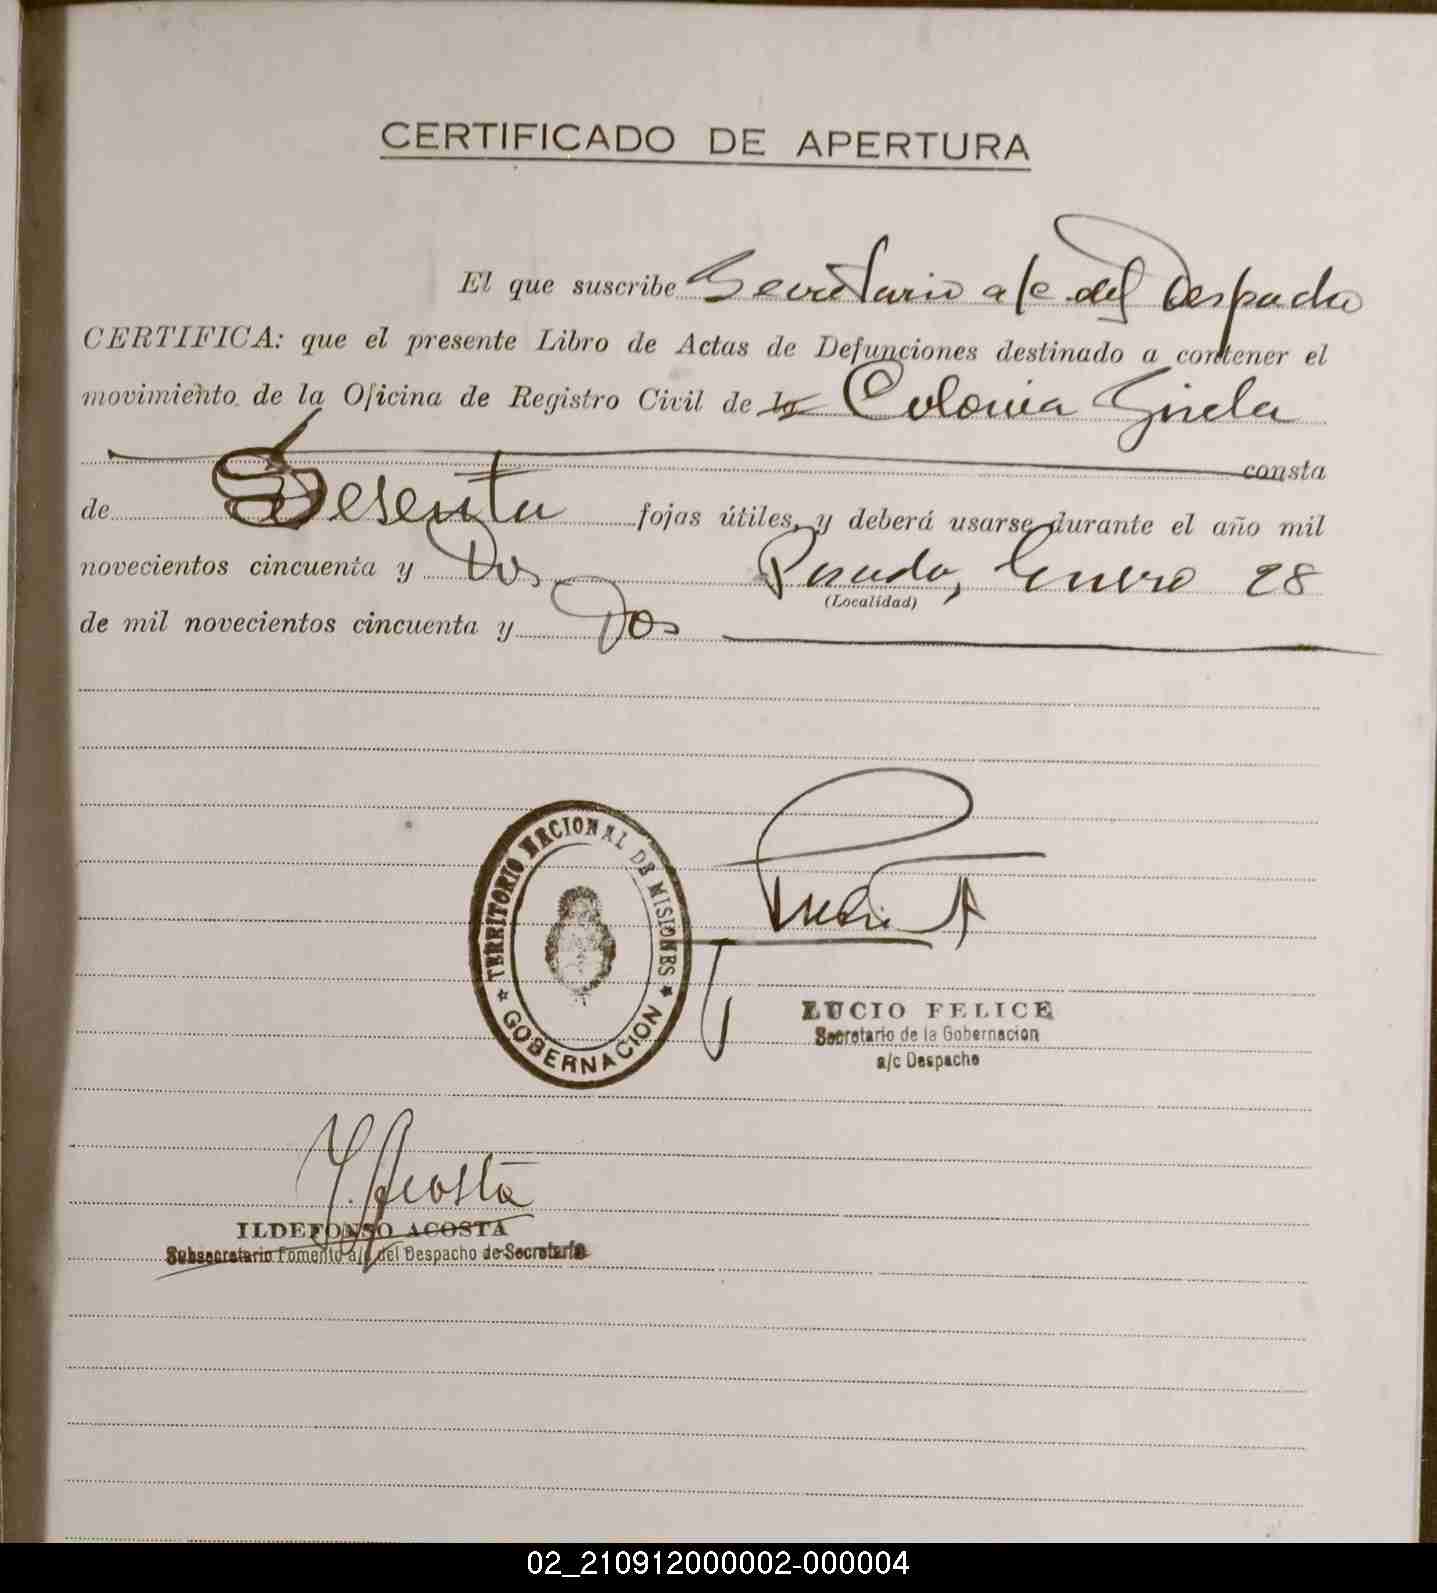 CERTIFICADO DE APERTURA
El que suscribe Secretario a/c del Despacho
CERTIFICA: que el presente Libro de Actas de Defunciones destinado a contener el
movimiento de la Oficina de Registro Civil de la Colonia
consta
de Sesenta fojas útiles, y deberá usarse durante el año mil
novecientos cincuenta y Dos Posadas, Enero 28
(Localidad)
de mil novecientos cincuenta y Dos
TERRITORIO NACIONAL DE MISIONES
GOBERNACION
LUCIO FELICE
Secretario de la Gobernacion
a/c Despacho
Y. Acosta
ILDEFONSO ACOSTA
Subsecretario Fomento a/c del Despacho de Secretaría
02_210912000002-000004